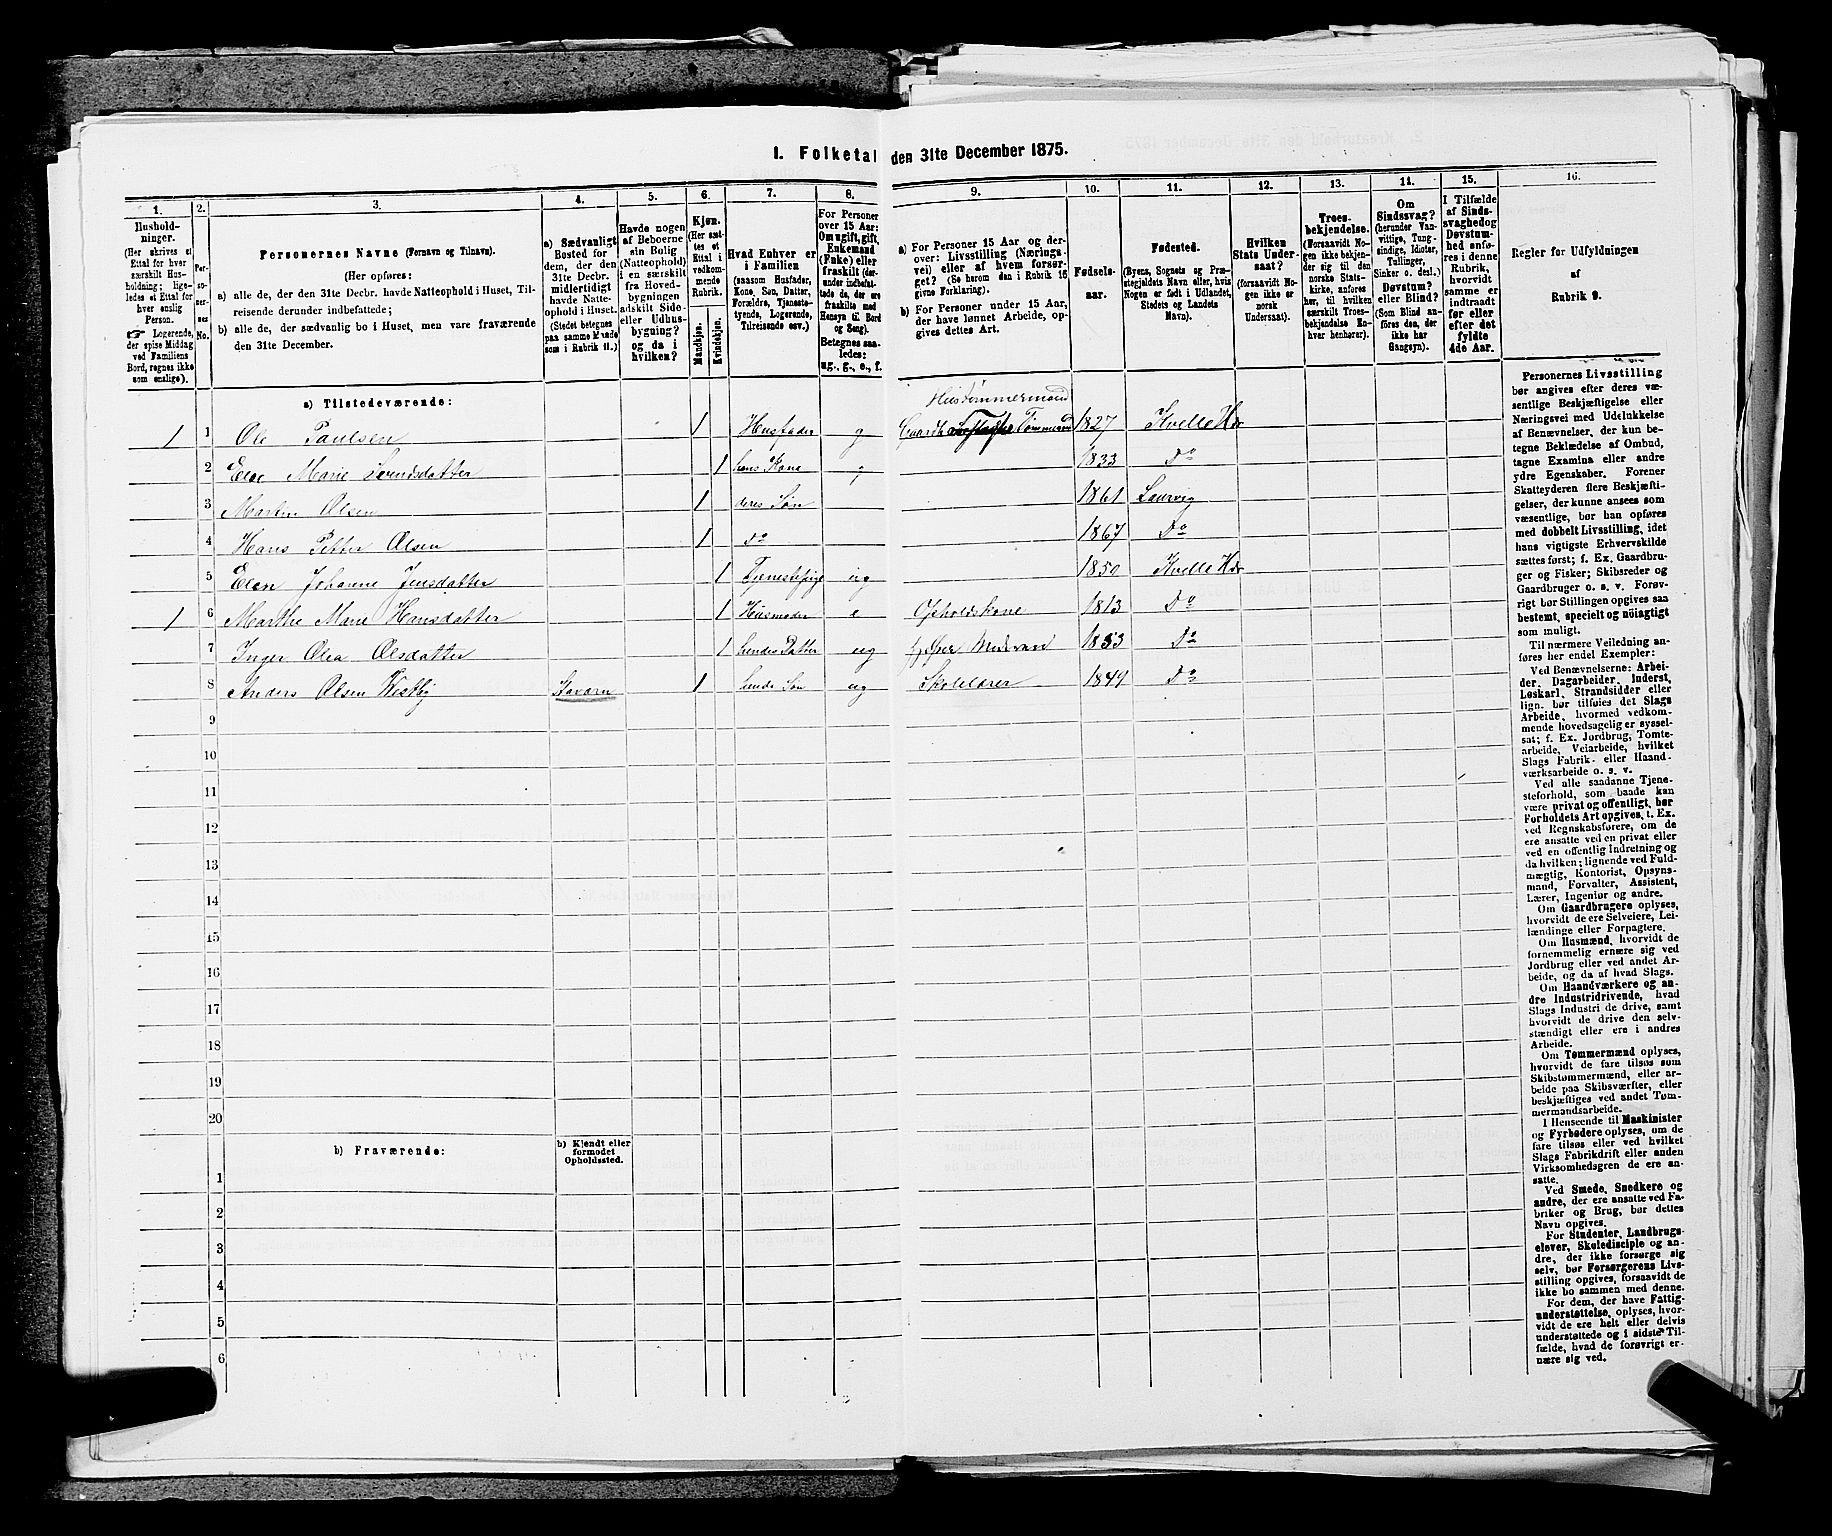 I. Folketal den 31te December 1875.
1. 2. 3. 4. 5. 6. 7. 8. 9. 10. 11. 12. 13. 14. 15. 16.
Husholdninger.
(Her skrives et
Ettal for hver
særskilt Husholdning;
ligeledes et Ettal for
hver enslig
Person.
☞ Logerende,
der spise Middag
ved Familiens
Bord, regnes ikke
som enslige).
Personernes No.
Personernes Navne (Fornavn og Tilnavn).
(Her opføres:
a) alle de, der den 31te Decbr. havde Natteophold i Huset, Tilreisende
derunder indbefattede;
b) alle de, der sædvanlig bo i Huset, men vare fraværende
den 31te December.
a) Sædvanligt
Bosted for
dem, der den
31te Decbr.
midlertidigt
havde Natteophold
i Huset.
(Stedet betegnes
paa samme Maade
som i Rubrik 11.)
Havde nogen
af Beboerne
sin Bolig
(Natteophold)
i en særskilt
fra Hovedbygningen
adskilt Side-
eller Udhusbygning?
og da i
hvilken?
Kjøn.
(Her sættes
et
Ettal i
vedkommende
Rubrik.
Mandkjøn.
Kvindekjøn.
Hvad Enhver er
i Familien
(saasom Husfader,
Kone, Søn, Datter,
Forældre, Tjenestetyende,
Logerende,
Tilreisende osv.)
For Personer
over 15 Aar:
Om ugift, gift,
Enkemand
(Enke) eller
fraskilt (derunder
indbefattede
de, der ere
fraskilte med
Hensyn til Bord
og Seng).
Betegnes saaledes:
ug., g., e., f.
a) For Personer 15 Aar og derover:
Livsstilling (Næringsvei)
eller af hvem forsørget?
(Se herom den i Rubrik 16
givne Forklaring).
b) For Personer under 15 Aar,
der have lønnet Arbeide, opgives
dettes Art.
Fødselsaar.
Fødested.
(Byens, Sognets og Præstegjeldets
Navn eller, hvis
Nogen er født i Udlandet,
Stedets og Landets
Navn).
Hvilken
Stats Undersaat?
(forsaavidt Nogen
ikke er
norsk
Undersaat).
Troesbekjendelse.
(Forsaavidt Nogen
ikke bekjender
sig til den
norske Statskirke,
anføres
her, til hvilken
særskilt Troesbekjendelse
Enhver
henhører).
Om
Sindssvag?
(herunder Vanvittige,
Tungsindige,
Idioter,
Tullinger,
Sinker o. desl.)
Døvstum?
eller Blind?
(Som Blind anføres
den, der
ikke har
Gangsyn).
I Tilfælde
af Sindssvaghed
og
Døvstumhed
anføres
i denne
Rubrik,
hvorvidt
samme er
indtraadt
før eller
efter det
fyldte
4de Aar.
Regler for Udfyldningen
af
Rubrik 9.
a) Tilstedeværende:
Hustømmermand
1 1 Ole Paulsen 1 Husfader g Tømmermand 1827 Kvelle Hdr
2 Marie 1 hans Kone g 1833 Do
3 Martin Olsen 1 deres Søn 1861 Laurvig
4 Hans Petter Olsen 1 do 1867 Do
5 Elen Johanne Jensdatter 1 Tjenestepige ug 1850 Kvelle Hdr
1 6 Marthe Marie Hansdatter 1 Husmoder e Opholdskone 1813 Do
7 Inger Olea Olsdatter 1 hendes Datter ug 1853 Do
8 Anders Olsen Westby Staværn 1 hendes Søn ug Skolelærer 1849 Do
9
10
11
12
13
14
15
16
17
18
19
20
b) Fraværende: b) Kjendt eller
formodet
Opholdssted.
1
2
3
4
5
6
Personernes Livsstilling
bør angives efter deres væsentlige
Beskjæftigelse eller
Næringsvei med Udelukkelse
af Benævnelser, der kun betegne
Beklædelse af Ombud,
tagne Examina eller andre
ydre Egenskaber. Forener
Skatteyderen flere Beskjæftigelser,
der kunne ansees som
væsentlige, bør han opføres
med dobbelt Livsstilling, idet
hans vigtigste Erhvervskilde
sættes først; f. Ex. Gaardbruger
og Fisker; Skibsreder og
Gaardbruger o. s. v. Forøvrigt
bør Stillingen opgives saa
bestemt, specielt og nöiagtigt
som muligt.
Til nærmere Veiledning anføres
her endel Exempler:
Ved Benævnelserne: Arbeider,
Dagarbeider, Inderst,
Løskarl, Strandsidder eller
lign. bør tilføies det Slags
Arbeide, hvormed vedkommende
hovedsagelig er sysselsat;
f. Ex. Jordbrug, Tomtearbeide,
Veiarbeide, hvilket
Slags Fabrik- eller Haandværksarbeide
o. s. v.
Ved alle saadanne Tjenesteforhold,
som baade kan
være privat og offentligt, bør
Forholdets Art opgives, t. Ex.
ved Regnskabsførere, om de
ere ansatte ved en privat eller
ved en offentlig Indretning og
da hvilken; lignende ved Fuldmægtig,
Kontorist, Opsynsmand,
Forvalter, Assistent,
Lærer, Ingeniør og andre.
Om Gaardbrugere oplyses,
hvorvidt de ere Selveiere, Leilændinge
eller Forpagtere.
Om Husmænd, hvorvidt de
fornemmelig ernære sig ved
Jordbrug eller ved andet Arbeide,
og da af hvad Slags.
Om Haandværkere og andre
Industridrivende, hvad
Slags Industri de drive, samt
hvorvidt de drive den selvstændigt
eller ere i andres
Arbeide.
Om Tømmermænd oplyses,
hvorvidt de fare tilsøs som
Skibstømmermænd, eller arbeide
paa Skibsværfter, eller
beskjæftiges ved andet Tømmermandsarbeide.
I Henseende til Maskinister
og Fyrbødere oplyses, om de
fare tilsøs eller ved hvilket
Slags Fabrikdrift eller anden
Virksomhedsgren de ere ansatte.
Ved Smede, Snedkere og
andre, der ere ansatte ved Fabriker
og Brug, bør dettes
Navn opgives.
For Studenter, Landbrugselever,
Skoledisciple og andre,
der ikke forsørge sig
selv, bør Forsørgerens Livsstilling
opgives, forsaavidt de
ikke bo sammen med denne.
For dem, der have Fattigunderstøttelse,
oplyses, hvorvidt
de ere helt eller delvis
understøttede og i sidste Tilfælde,
hvad de forøvrigt ernære
sig ved.